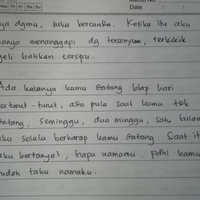 Mo Tu We Th Fr Sa Su
Date
ya dgmu, suka bercanda. Ketika itu aku
hanya menanggapi dg tersenyum, terkikik
geli bahkan tersipu.
Ada kalanya kamu datang bbrp hari
berturut-turut, ada pula saat kamu tdk
datang, seminggu, dua minggu, satu bulan
aku selalu berharap kamu datang. Saat it
aku bertanya, siapa namamu, pdhl kamu
sudah tahu namaku.